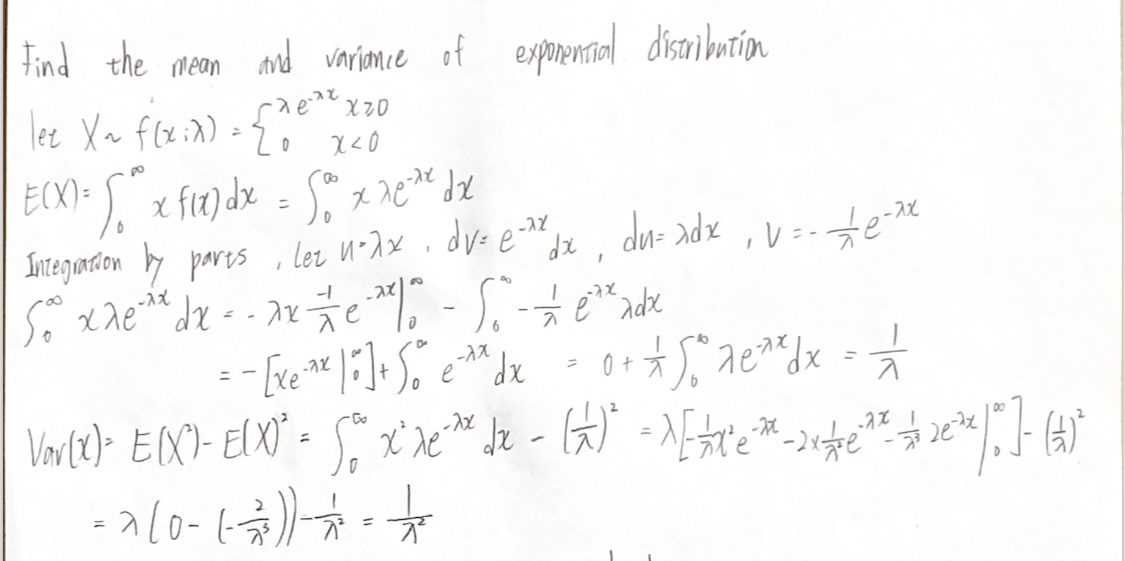 Find the mean and variance of exponential distribution
let X ~ f(x;λ) = { λe^{-λx} x≥0
0 x<0
E(X) = ∫_0^∞ x f(x) dx = ∫_0^∞ x λe^{-λx} dx
Integration by parts, let u=λx, dv=e^{-λx} dx, du=λdx, v = -\frac{1}{λ} e^{-λx}
∫_0^∞ xλe^{-λx} dx = - λx \frac{-1}{λ} e^{-λx} |_0^∞ - ∫_0^∞ -\frac{1}{λ} e^{-λx} λdx
= -[xe^{-λx} |_0^∞] + ∫_0^∞ e^{-λx} dx = 0 + \frac{1}{λ} ∫_0^∞ λe^{-λx} dx = \frac{1}{λ}
Var(x) = E(X²) - E(X)² = ∫_0^∞ x² λe^{-λx} dx - (\frac{1}{λ})² = λ[-\frac{1}{λ}x²e^{-λx} - 2x\frac{1}{λ²}e^{-λx} - \frac{1}{λ³} 2e^{-λx} |_0^∞] - (\frac{1}{λ})²
= λ(0 - (-\frac{2}{λ³})) - \frac{1}{λ²} = \frac{1}{λ²}